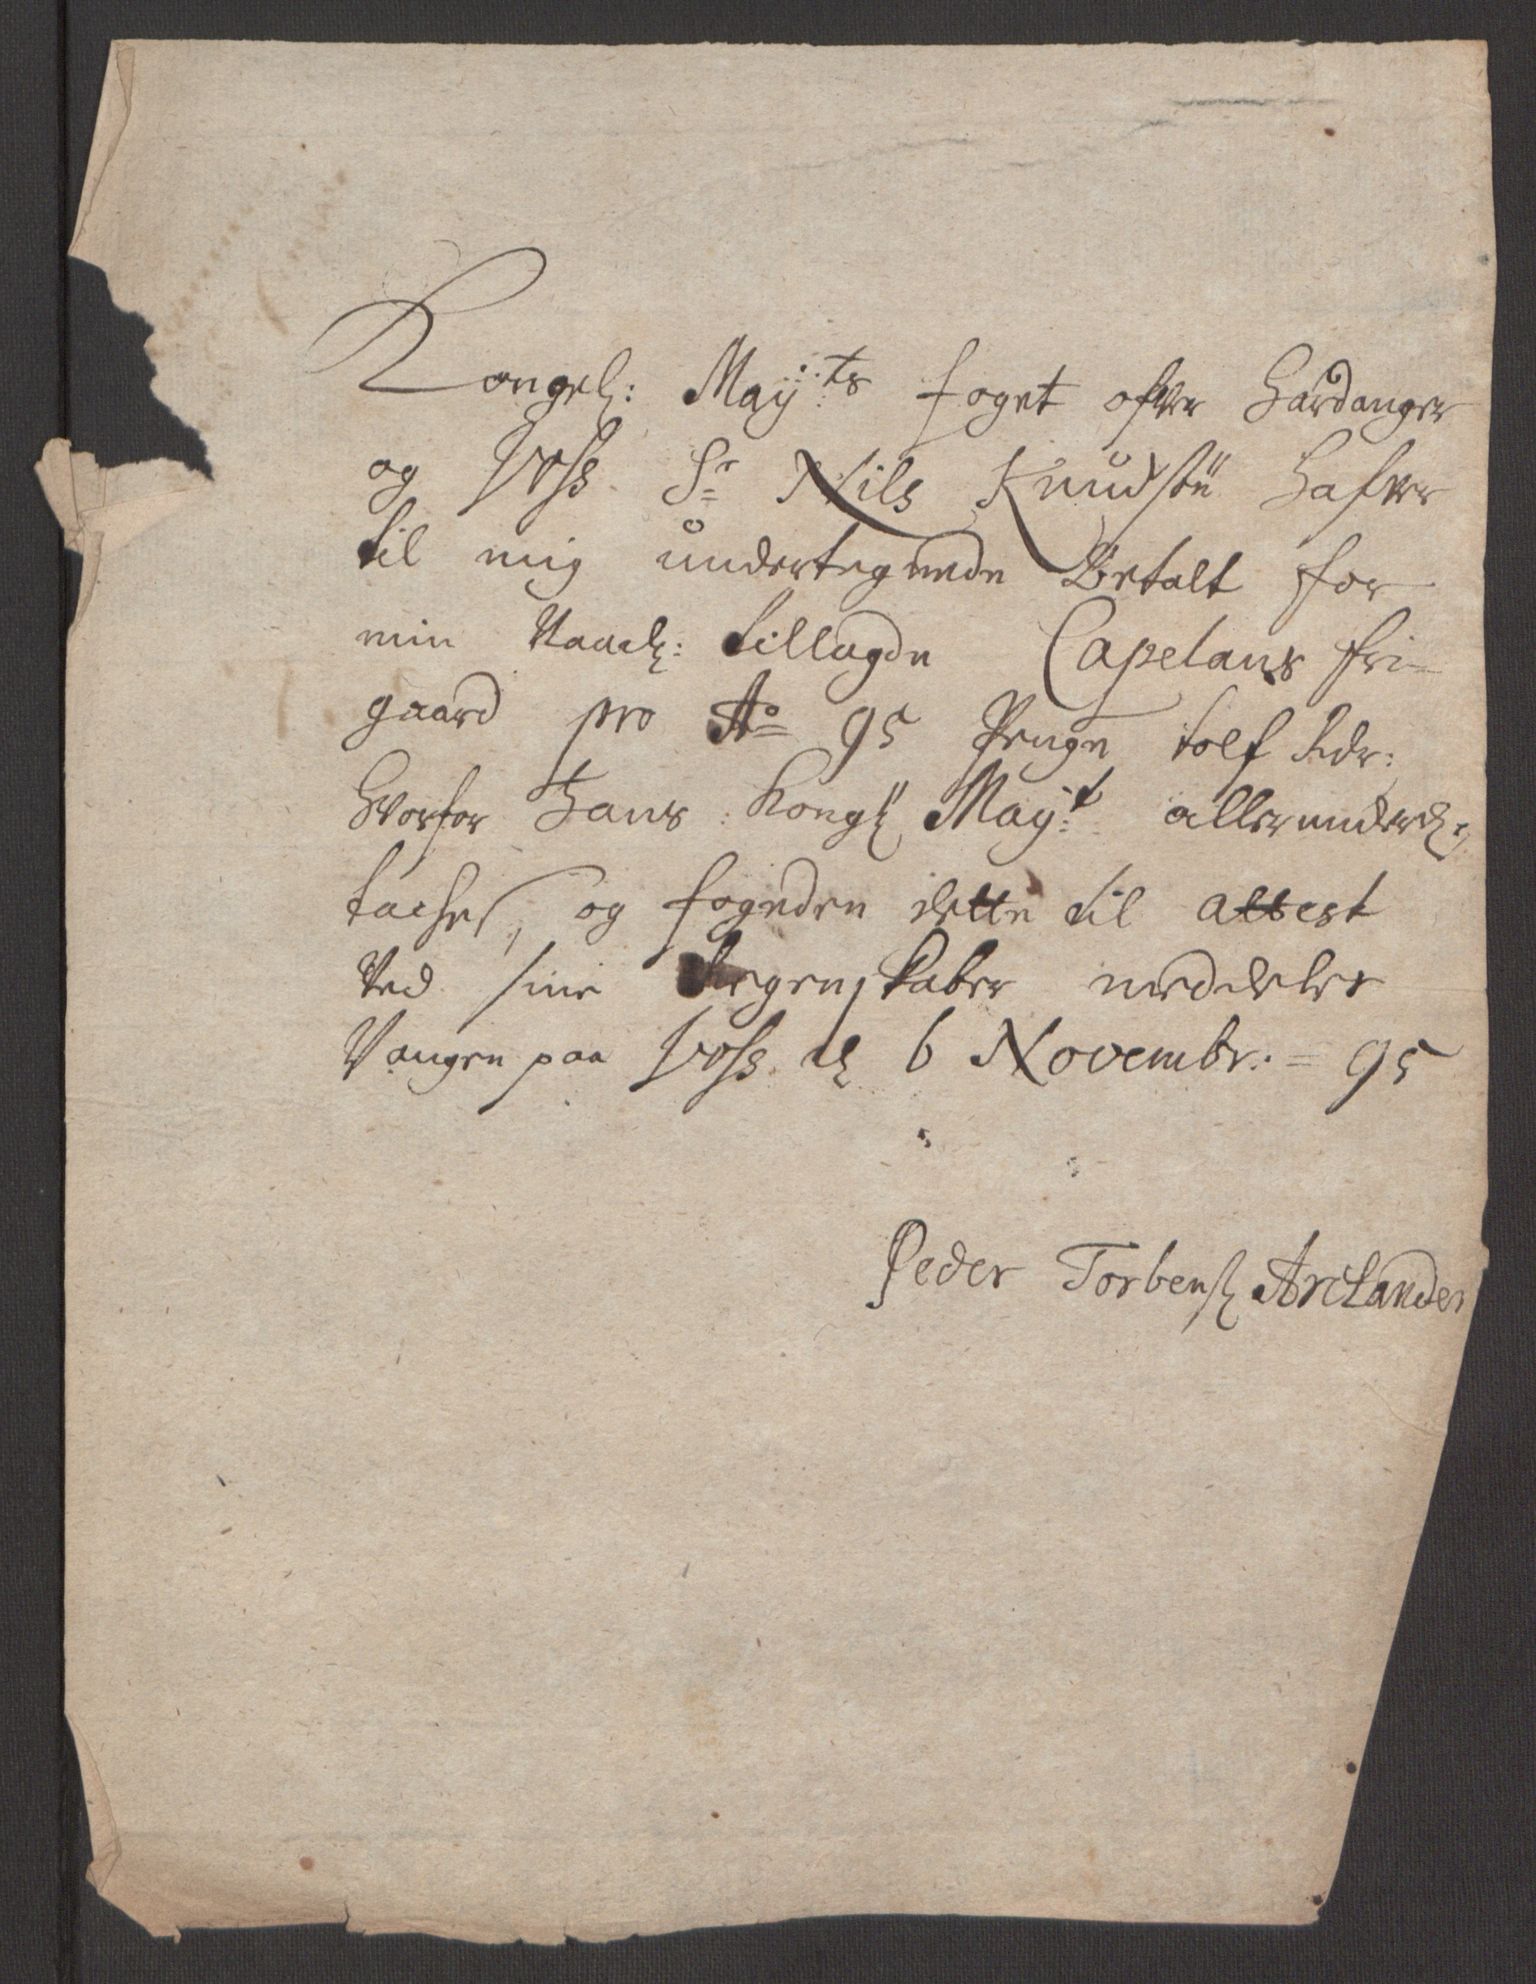 Kongel: Mayj:ts foget ofver Hardanger
og Voss Sr Nils Knudsen hafver
til mig undertegnede Betalt for
min Naadl: tillagde Capelans fri-
gaard pro Ao 95 Penge tolf Rdr:
hvorfor hans Kongl Mayt allerunderd:
tackes, og fogeden dette til attest
Ved sine Regenskaber meddeles
Vangen paa Voss d 6 Novembr: = 95
Peder Torbens Arctander